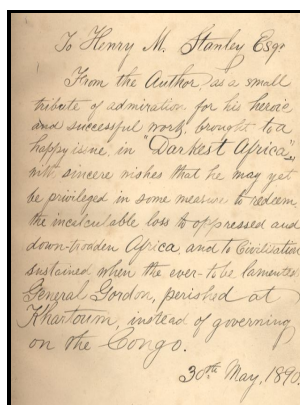 To Henry M. Stanley Esqr
From the Author, as a small
tribute of admiration for his heroic
and successful work, brought to a
happy issue, in "Darkest Africa",
with sincere wishes that he may yet
be privileged in some measure to redeem
the incalculable loss to oppressed and
down-trodden Africa, and to Civilisation
sustained when the ever-to be lamented
General Gordon, perished at
Khartoum, instead of governing
on the Congo.
30th May, 1890.